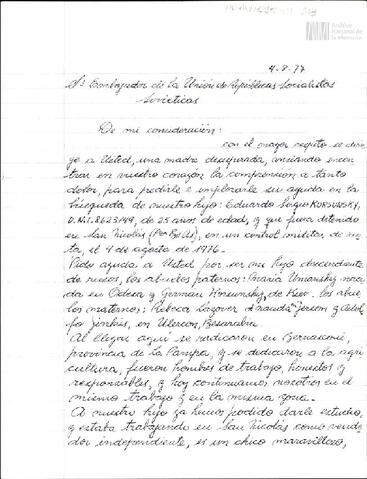 Archivo
Nacional de
la Memoria
4.8.77
Sr Embajador de la Unión de Repúblicas Socialistas
Sovieticas
De mi consideración:
con el mayor respeto se diri-
jo a Usted, una madre desesperada, ansiando encon
trar en vuestro corazón la comprension a tanto
dolor, para pedirle e implorarle su ayuda en la
búsqueda de nuestro hijo: Eduardo Sergio KORSUNSKY,
D.N.I. 8623149, de 25 años de edad, y que fuera detenido
en San Nicolás (Pcia Bs As), en un control militar de ru-
ta, el 4 de agosto de 1976.
Pido ayuda a Usted por ser mi hijo descendiente
de rusos, los abuelos paternos: Maria Umansky naci
da en Odesa y German Korsunsky, de Kiev. los abue
los maternos: Rebeca Lagover nacida Jerson y Adol
fo, en, Besarabia.
Al llegar aqui se radicaron en Bernasconi,
provincia de La Pampa, y se dedicaron a la agri
cultura, fueron hombres de trabajo, honestos y
responsables, y hoy continuamos nosotros en el
mismo trabajo y en la misma zona.
A nuestro hijo ya hemos podido darle estudio,
y estaba trabajando en San Nicolás como vende
dor independiente, es un chico maravilloso,